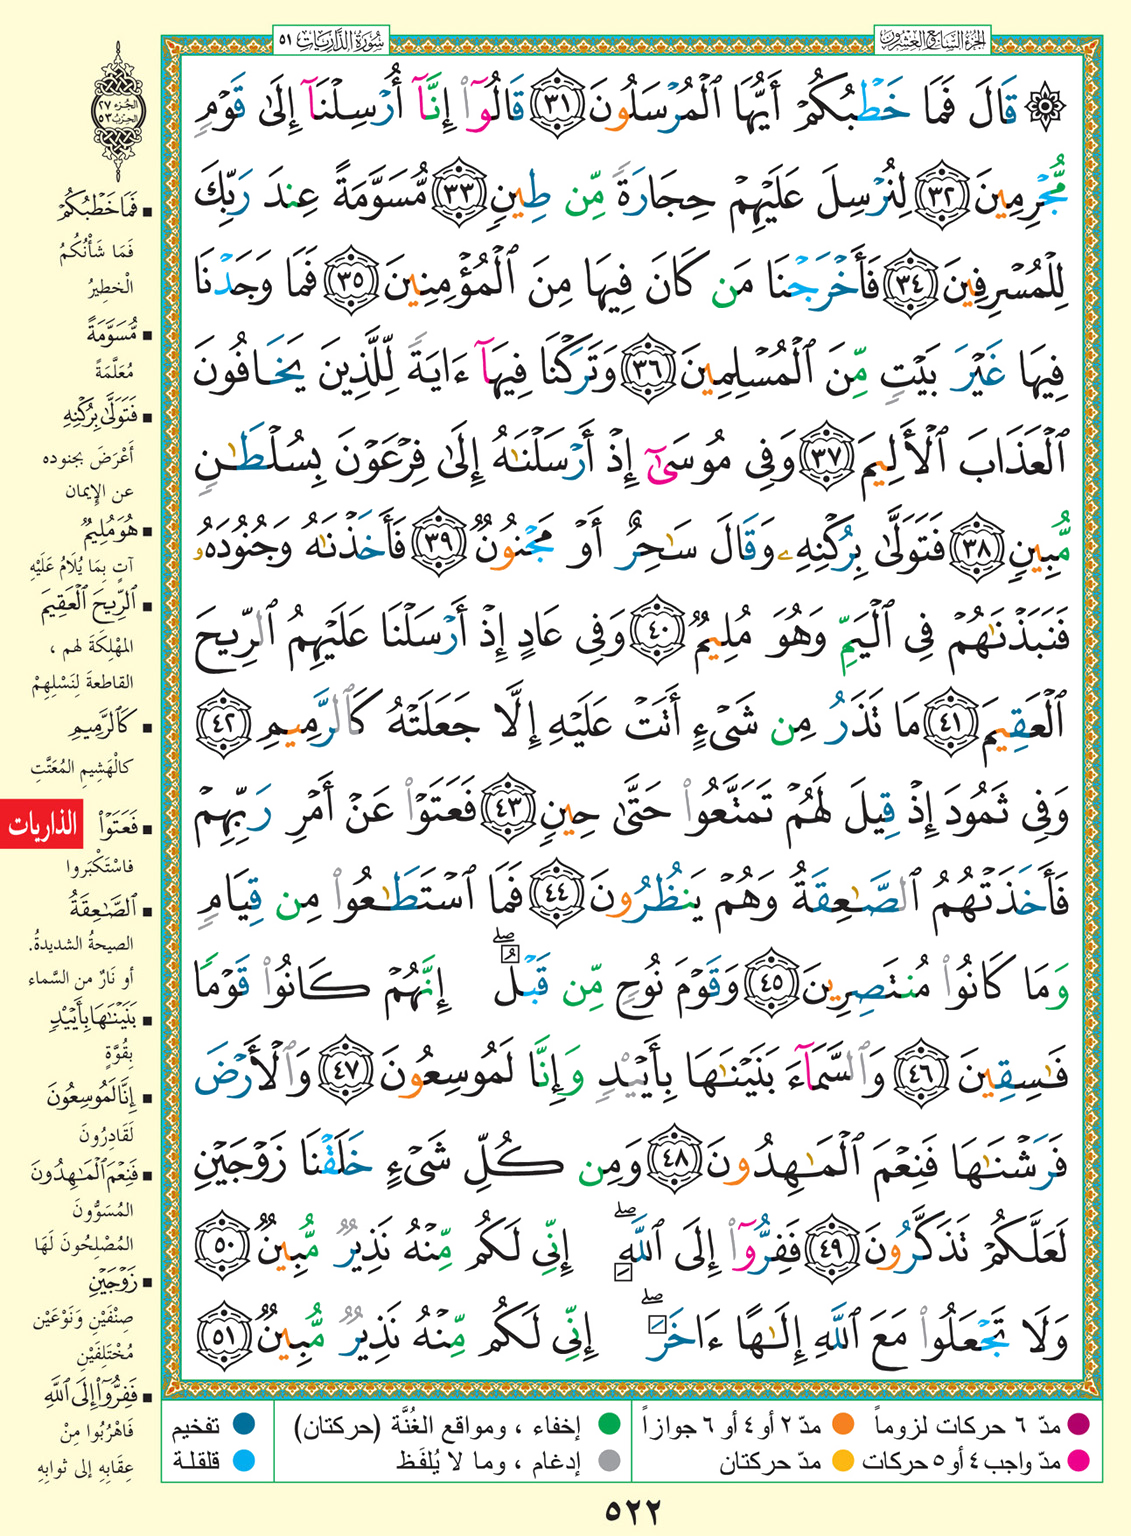 سُورَةُ الذَّارِيَات ٥١
الجُزءُ السَّابِعُ وَالعِشْرُونَ
الجُزء ٢٧
الحِزْبُ ٥٣
۞ قَالَ فَمَا خَطْبُكُمْ أَيُّهَا ٱلْمُرْسَلُونَ ٣١ قَالُوٓا۟ إِنَّآ أُرْسِلْنَآ إِلَىٰ قَوْمٍ
مُّجْرِمِينَ ٣٢ لِنُرْسِلَ عَلَيْهِمْ حِجَارَةً مِّن طِينٍ ٣٣ مُّسَوَّمَةً عِندَ رَبِّكَ
لِلْمُسْرِفِينَ ٣٤ فَأَخْرَجْنَا مَن كَانَ فِيهَا مِنَ ٱلْمُؤْمِنِينَ ٣٥ فَمَا وَجَدْنَا
فِيهَا غَيْرَ بَيْتٍ مِّنَ ٱلْمُسْلِمِينَ ٣٦ وَتَرَكْنَا فِيهَآ ءَايَةً لِّلَّذِينَ يَخَافُونَ
ٱلْعَذَابَ ٱلْأَلِيمَ ٣٧ وَفِى مُوسَىٰٓ إِذْ أَرْسَلْنَـٰهُ إِلَىٰ فِرْعَوْنَ بِسُلْطَـٰنٍ
مُّبِينٍ ٣٨ فَتَوَلَّىٰ بِرُكْنِهِۦ وَقَالَ سَـٰحِرٌ أَوْ مَجْنُونٌ ٣٩ فَأَخَذْنَـٰهُ وَجُنُودَهُۥ
فَنَبَذْنَـٰهُمْ فِى ٱلْيَمِّ وَهُوَ مُلِيمٌ ٤٠ وَفِى عَادٍ إِذْ أَرْسَلْنَا عَلَيْهِمُ ٱلرِّيحَ
ٱلْعَقِيمَ ٤١ مَا تَذَرُ مِن شَىْءٍ أَتَتْ عَلَيْهِ إِلَّا جَعَلَتْهُ كَٱلرَّمِيمِ ٤٢
وَفِى ثَمُودَ إِذْ قِيلَ لَهُمْ تَمَتَّعُوا۟ حَتَّىٰ حِينٍ ٤٣ فَعَتَوْا۟ عَنْ أَمْرِ رَبِّهِمْ
فَأَخَذَتْهُمُ ٱلصَّـٰعِقَةُ وَهُمْ يَنظُرُونَ ٤٤ فَمَا ٱسْتَطَـٰعُوا۟ مِن قِيَامٍ
وَمَا كَانُوا۟ مُنتَصِرِينَ ٤٥ وَقَوْمَ نُوحٍ مِّن قَبْلُ ۖ إِنَّهُمْ كَانُوا۟ قَوْمًا
فَـٰسِقِينَ ٤٦ وَٱلسَّمَآءَ بَنَيْنَـٰهَا بِأَيْي۟دٍ وَإِنَّا لَمُوسِعُونَ ٤٧ وَٱلْأَرْضَ
فَرَشْنَـٰهَا فَنِعْمَ ٱلْمَـٰهِدُونَ ٤٨ وَمِن كُلِّ شَىْءٍ خَلَقْنَا زَوْجَيْنِ
لَعَلَّكُمْ تَذَكَّرُونَ ٤٩ فَفِرُّوٓا۟ إِلَى ٱللَّهِ ۖ إِنِّى لَكُم مِّنْهُ نَذِيرٌ مُّبِينٌ ٥٠
وَلَا تَجْعَلُوا۟ مَعَ ٱللَّهِ إِلَـٰهًا ءَاخَرَ ۖ إِنِّى لَكُم مِّنْهُ نَذِيرٌ مُّبِينٌ ٥١
فَمَا خَطْبُكُمْ
فَمَا شَأْنُكُمُ
الْخطِيرُ
مُّسَوَّمَةً
مُعَلَّمَةً
فَتَوَلَّىٰ بِرُكْنِهِ
أَعْرَضَ بجنوده
عن الإيمان
هُوَ مُلِيمٌ
آتٍ بِمَا يُلَامُ عَلَيْهِ
ٱلرِّيحَ ٱلْعَقِيمَ
المُهْلِكَةَ لهم ،
القاطعةَ لِنَسْلِهِمْ
كَٱلرَّمِيمِ
كالْهَشِيمِ المُفَتَّتِ
فَعَتَوْا۟
فاسْتَكْبَروا
ٱلصَّـٰعِقَةُ
الصيحةُ الشديدةُ.
أو نَارٌ من السَّماء
بَنَيْنَـٰهَا بِأَيْي۟دٍ
بِقُوَّةٍ
إِنَّا لَمُوسِعُونَ
لَقَادِرُونَ
فَنِعْمَ ٱلْمَـٰهِدُونَ
المُسَوُّونَ
المُصْلِحُونَ لَهَا
زَوْجَيْنِ
صِنْفَيْنِ وَنَوْعَيْن
مُخْتَلِفَيْنِ
فَفِرُّوٓا۟ إِلَى ٱللَّهِ
فَاهْرُبُوا مِنْ
عِقَابِهِ إلى ثوابِهِ
الذاريات
مدّ ٦ حركات لزوماً مدّ ٢ أو ٤ أو ٦ جوازاً إخفاء ، ومواقع الغُنَّة (حركتان) تفخيم
مدّ واجب ٤ أو ٥ حركات مدّ حركتان إدغام ، وما لا يُلفَظ قلقلة
٥٢٢